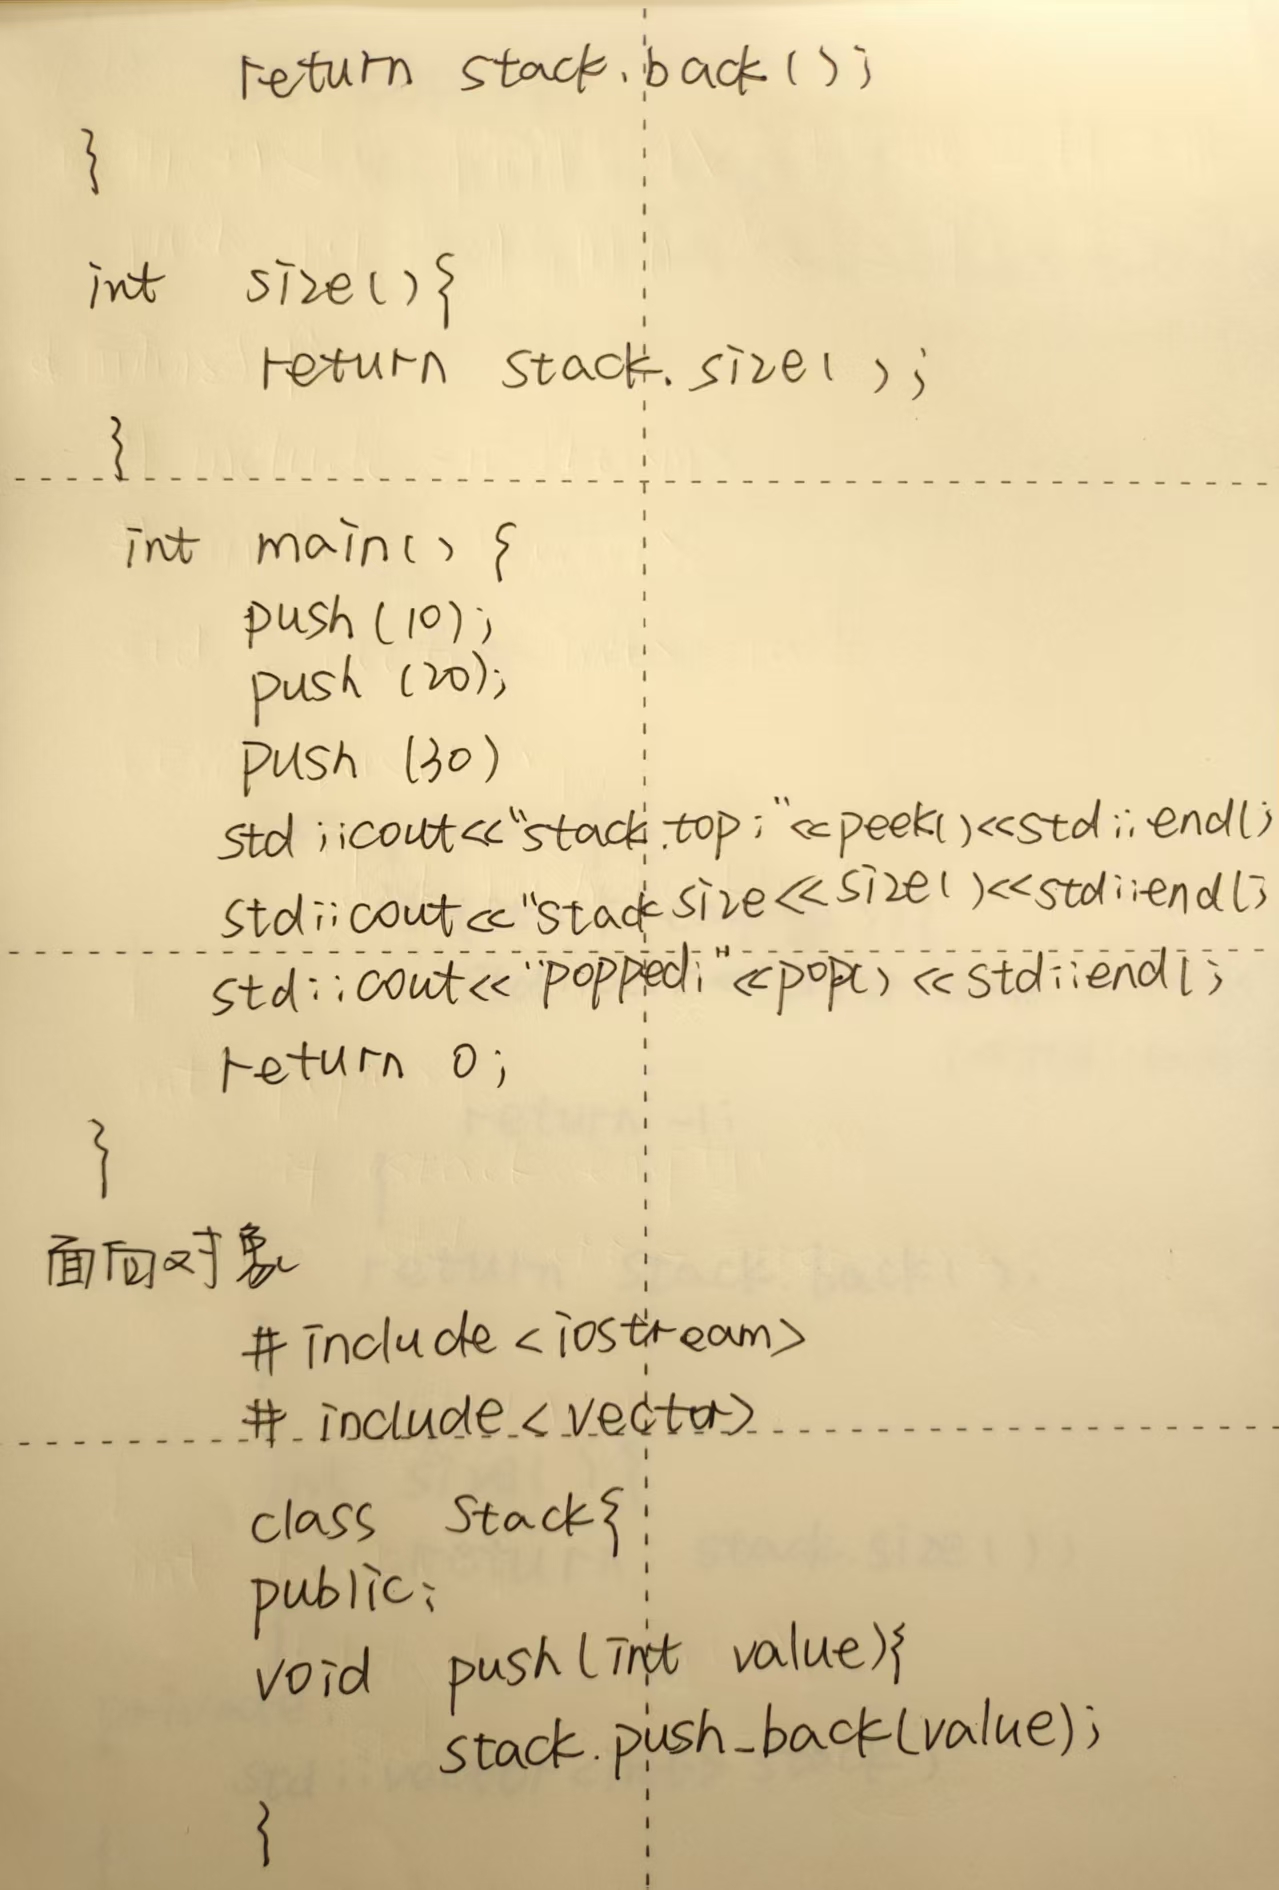 return stack.back();
}
int size(){
return stack.size();
}
int main() {
push(10);
push (20);
push (30)
std::cout<<"stack.top:"<<peek()<<std::endl;
std::cout<<"stack size<<size()<<std::endl;
std::cout<<"popped:"<<pop() <<std::endl;
return 0;
}
面向对象
# include <iostream>
# include <vector>
class Stack{
public:
void push(int value){
stack.push_back(value);
}